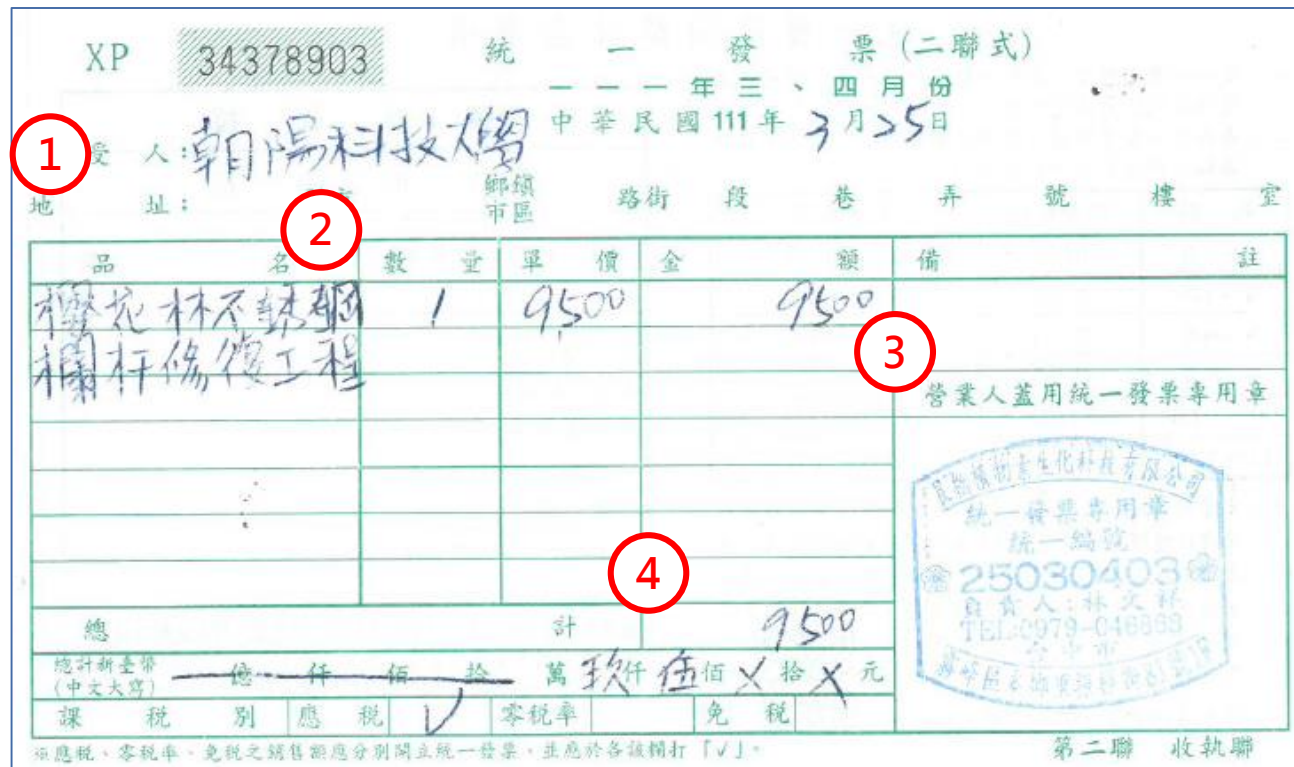 XP 34378903 統一發票(二聯式)
一一一年三、四月份
中華民國 111年 3月25日
1 受 人:朝陽科技大學
地 址: 鄉鎮市區 路街 段 巷 弄 號 樓 室
2
品名 數量 單價 金額 備註
櫻花林不銹鋼 1 9,500 9500
欄杆修復工程
3
營業人蓋用統一發票專用章
統一發票專用章
統一編號
25030403
負責人:林文祥
TEL:0979-046868
台中市
4
總計 9500
總計新臺幣(中文大寫) 億 仟 佰 拾 萬 玖仟 伍佰 X 拾 X 元
課稅別 應稅 V 零稅率 免稅
※應稅、零稅率、免稅之銷售額應分別開立統一發票,並應於各該欄打「√」。
第二聯 收執聯